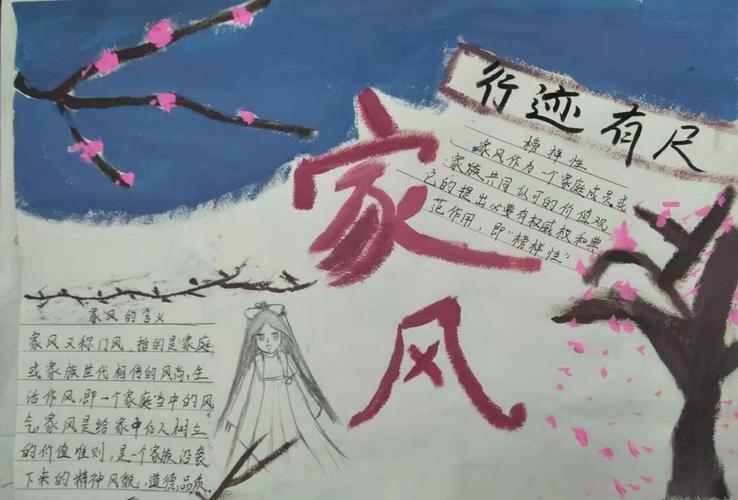 行迹有尺
家风
榜样性
家风作为一个家庭成员或
家族共同认可的价值观
它的提出必要有权威权和典
范作用，即"榜样性"
家风的含义
家风又称门风，指的是家庭
或家族世代相传的风尚，生
活作风，即一个家庭当中的风
气，家风是给家中后人树立
的价值准则，是一个家族沿袭
下来的精神风貌，道德品质.